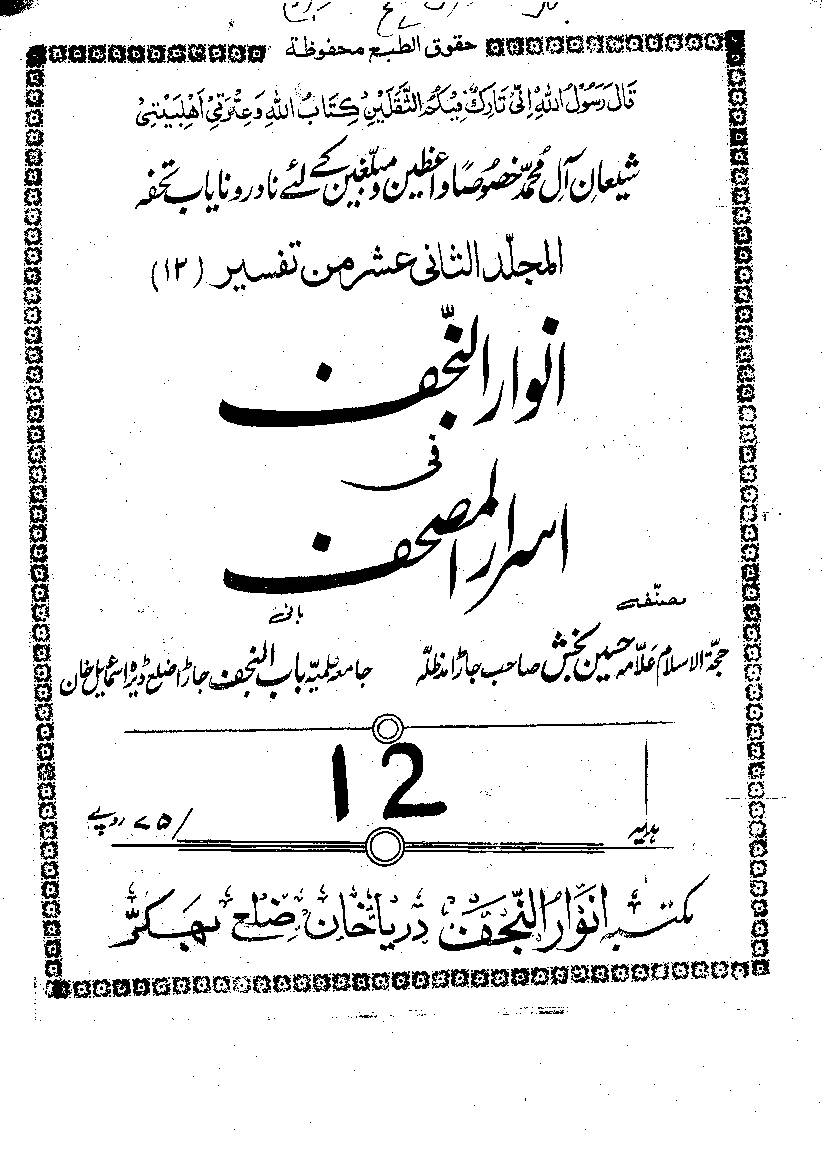 حقوق الطبع محفوظة
قَالَ رَسُوْلُ اللهِ اِنِّیْ تَارِكٌ فِیْكُمُ الثَّقَلَیْنِ كِتَابُ اللهِ وَعِتْرَتِیْ اَهْلِبَیْتِیْ
شیعانِ آلِ محمدؐ خصوصاً واعظین و مبلّغین کے لئے نادر و نایاب تحفہ
المجلّد الثانی عشر من تفسیر (۱۲)
انوار النّجف
فی
اسرار المصحف
مصنّفہ
بانی
حجۃ الاسلام علّامہ حسین بخش صاحب جاڑا مدظلہ
جامعہ علمیّہ باب النجف جاڑا ضلع ڈیرہ اسماعیل خان
12
ہدیہ
/۷۵ روپے
مکتبہ انوار النّجف دریا خان ضلع بھکّر